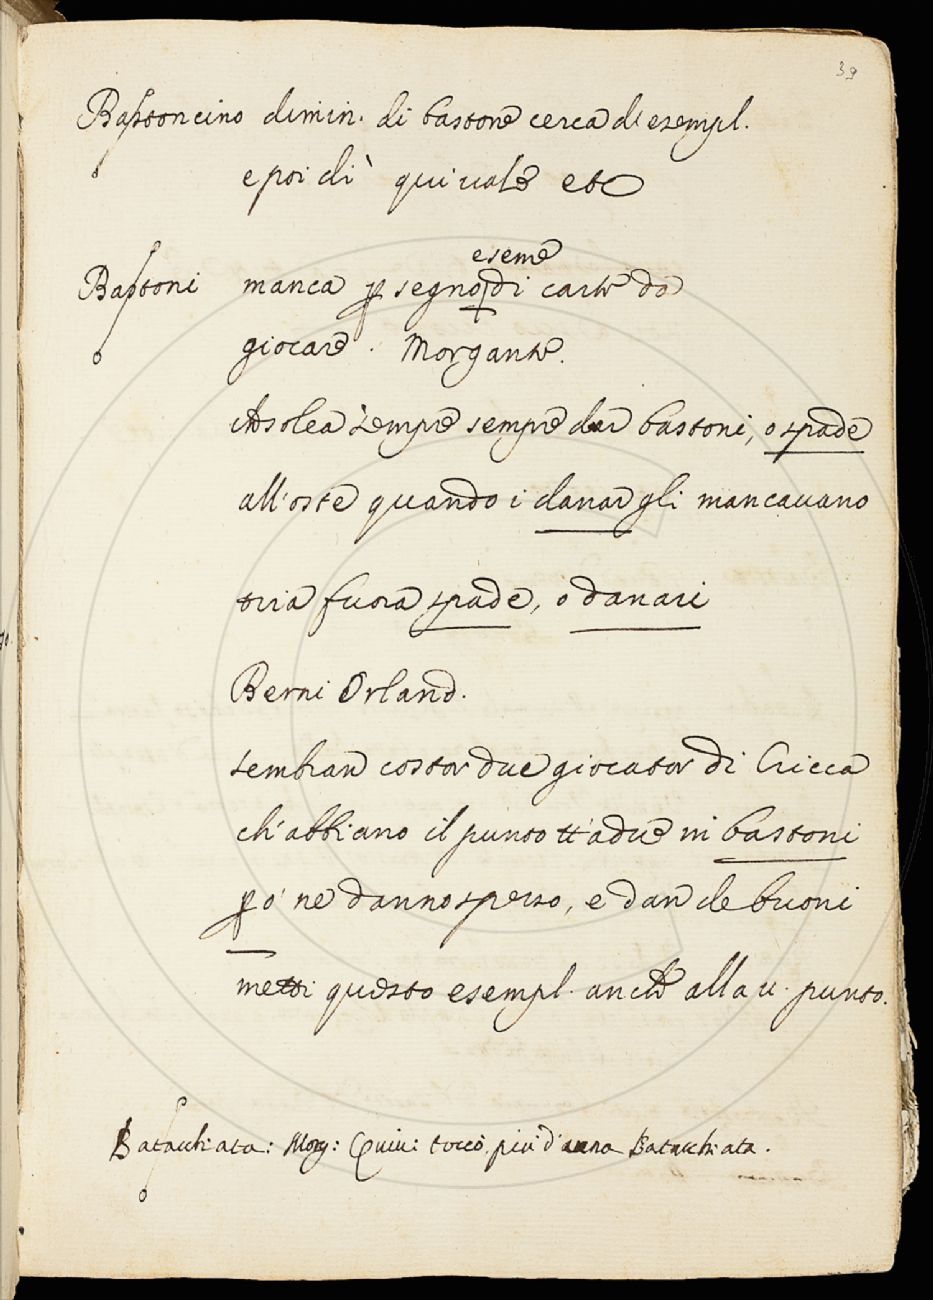 39
Bastoncino dimin. di bastone cerca di esempl.
e poi di' qui vale etc
Bastoni manca p segno di carte da
e seme
giocare. Morgante.
solea sempre sempre dar bastoni, o spade
all'oste quando i danar gli mancavano
tria fuora spade, o danari
Berni Orland.
sembran costor due giocator di Cricca
ch'abbiano il punto tt'a due in bastoni
p o' ne danno spesso, e dan de buoni
metti questo esempl. anche alla v. punto.
Batacchiata: Morg: Quivi toccò più d'una Batacchiata.